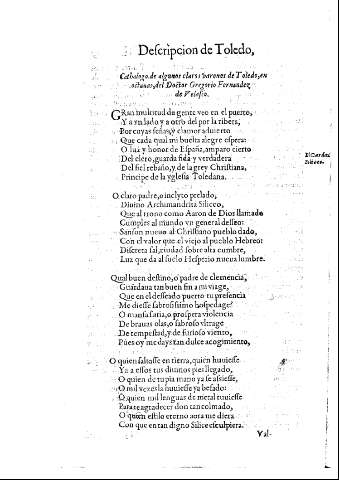 Descripcion de Toledo,
Cathalogo de algunos claros varones de Toledo, en
octauas, del Doctor Gregorio Fernandez
de Velasco.
GRan multitud de gente veo en el puerto,
Y a vn lado y a otro del por la ribera,
Por cuyas señas, y clamor aduierto
Que cada qual mi buelta alegre espera:
O luz y honor de España, amparo cierto
Del clero, guarda fida y verdadera
Del fiel rebaño, y de la grey Christiana,
Principe de la yglesia Toledana.
El Cardenal
Siliceo.
O claro padre, o inclyto prelado,
Diuino Archimandrita Siliceo,
Que al trono como Aaron de Dios llamado
Cumples al mundo vn general desseo:
Sanson nueuo al Christiano pueblo dado,
Con el valor que el viejo al pueblo Hebreo:
Discreta sal, ciudad sobre alta cumbre,
Luz que da al suelo Hesperio nueua lumbre.
Qual buen destino, o padre de clemencia,
Guardaua tan buen fin a mi viage,
Que en el desseado puerto tu presencia
Me diesse sabrosissimo hospedage?
O mansa furia, o prospera violencia
De brauas olas, o sabroso vltrage
De tempestad, y de furioso viento,
Pues oy me days tan dulce acogimiento,
O quien saltasse en tierra, quien huuiesse
Ya a essos tus diuinos pies llegado,
O quien de tu pia mano ya se assiesse,
O mil vezes la huuiesse ya besado:
O quien mil lenguas de metal tuuiesse
Para te agradecer don tan colmado,
O quien estilo eterno aora me diera
Con que en tan digno Silice esculpiera.
Val-